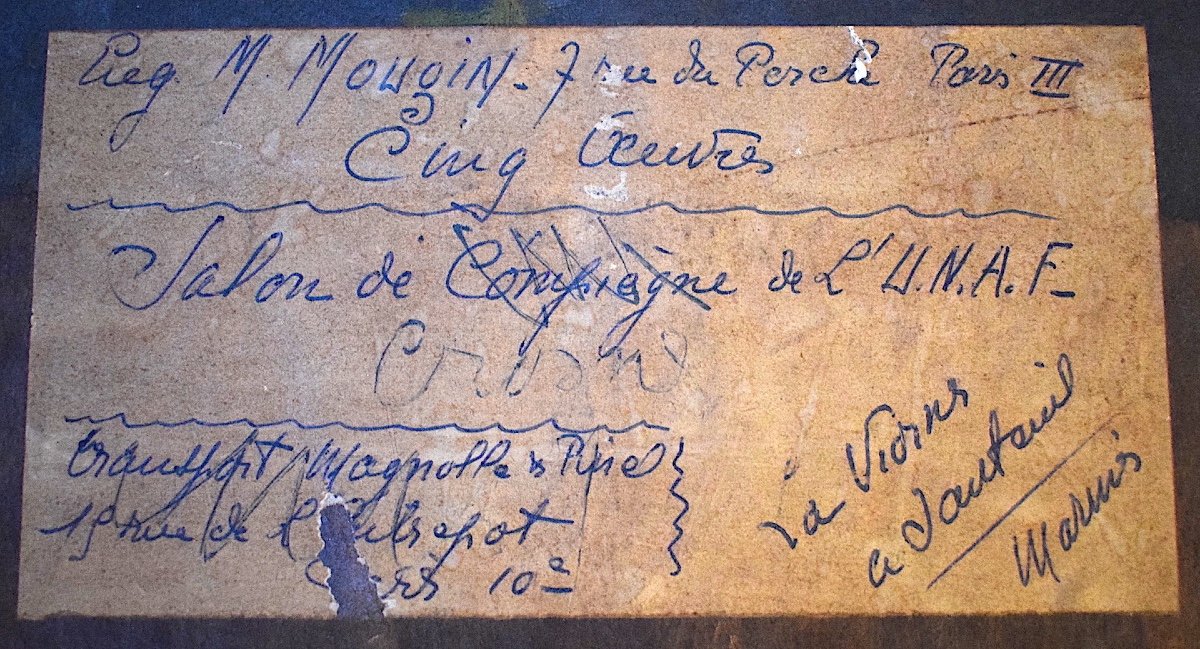 M. MOUGIN - 7 rue du Perche Paris III
Cinq Œuvres
Salon de Compiègne de L'U.N.A.F-
transport Magnolle &
19 rue de l'Entrepot
Paris 10e
La Viorne
a Nanteuil